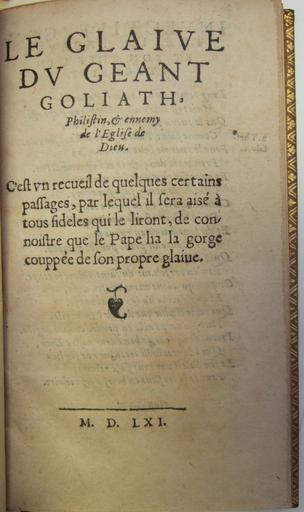 LE GLAIVE
DV GEANT
GOLIATH,
Philiſtin, & ennemy
de l'Egliſe de
Dieu.
C'eſt vn recueil de quelques certains
paſſages, par lequel il ſera aiſé à
tous fideles qui le liront, de con-
noiſtre que le Pape ha la gorge
couppée de ſon propre glaiue.
M. D. LXI.